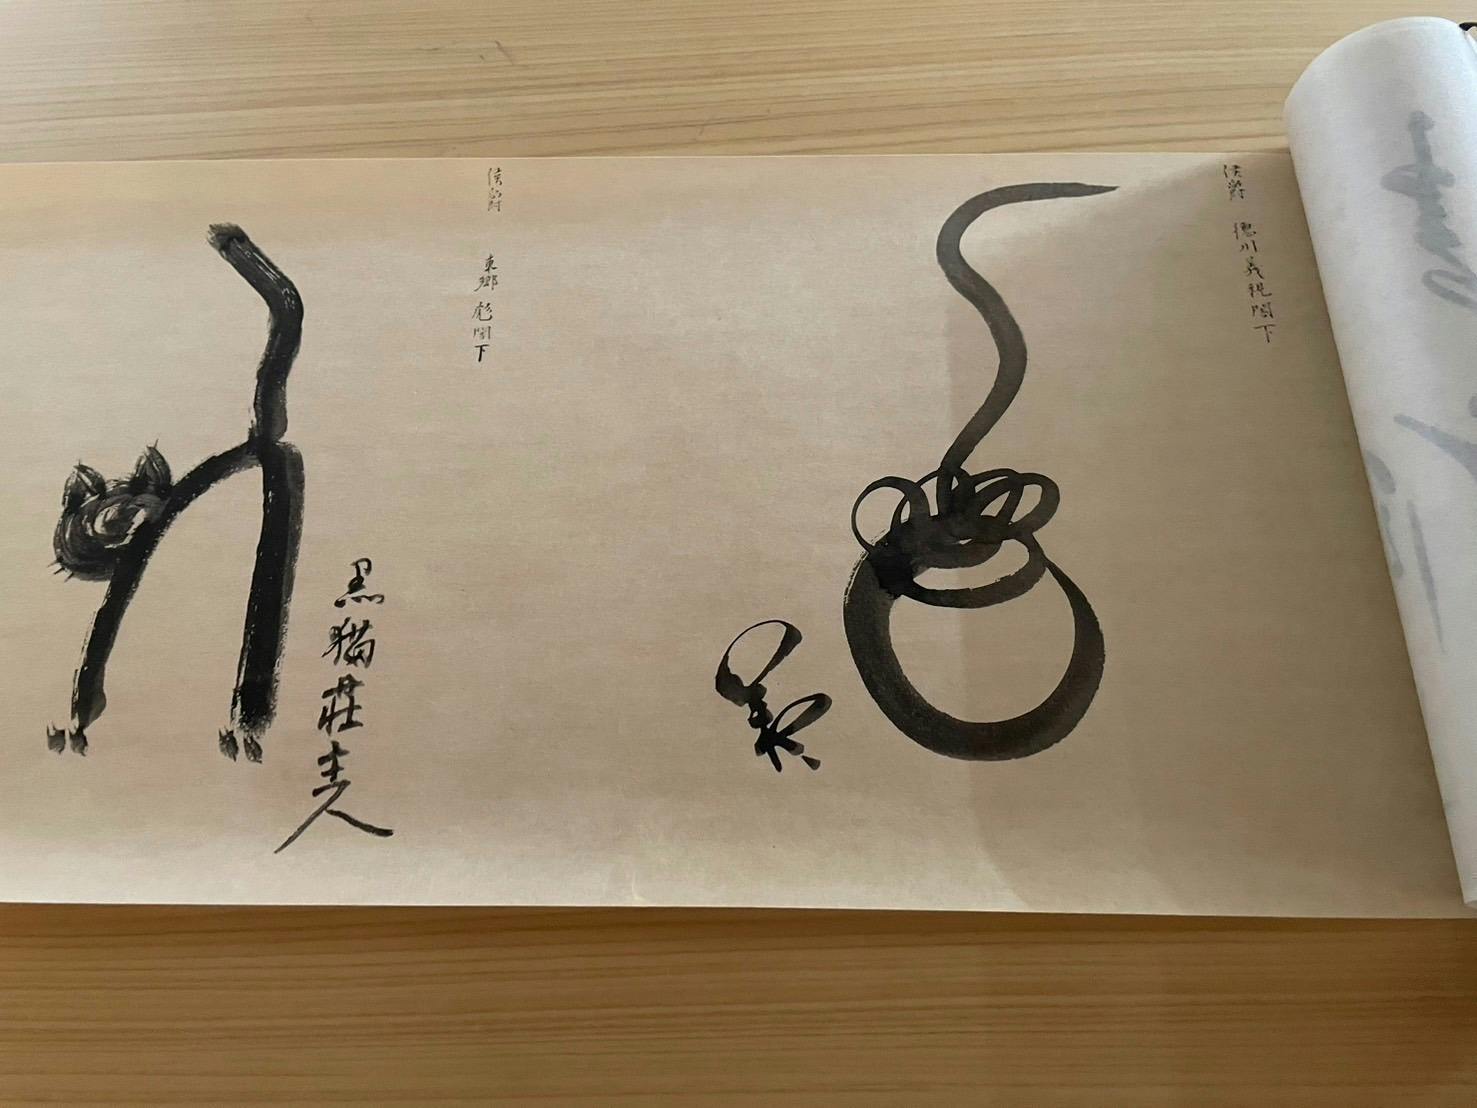 侯爵 徳川義親閣下
侯爵 東郷彪閣下
黒猫荘主人